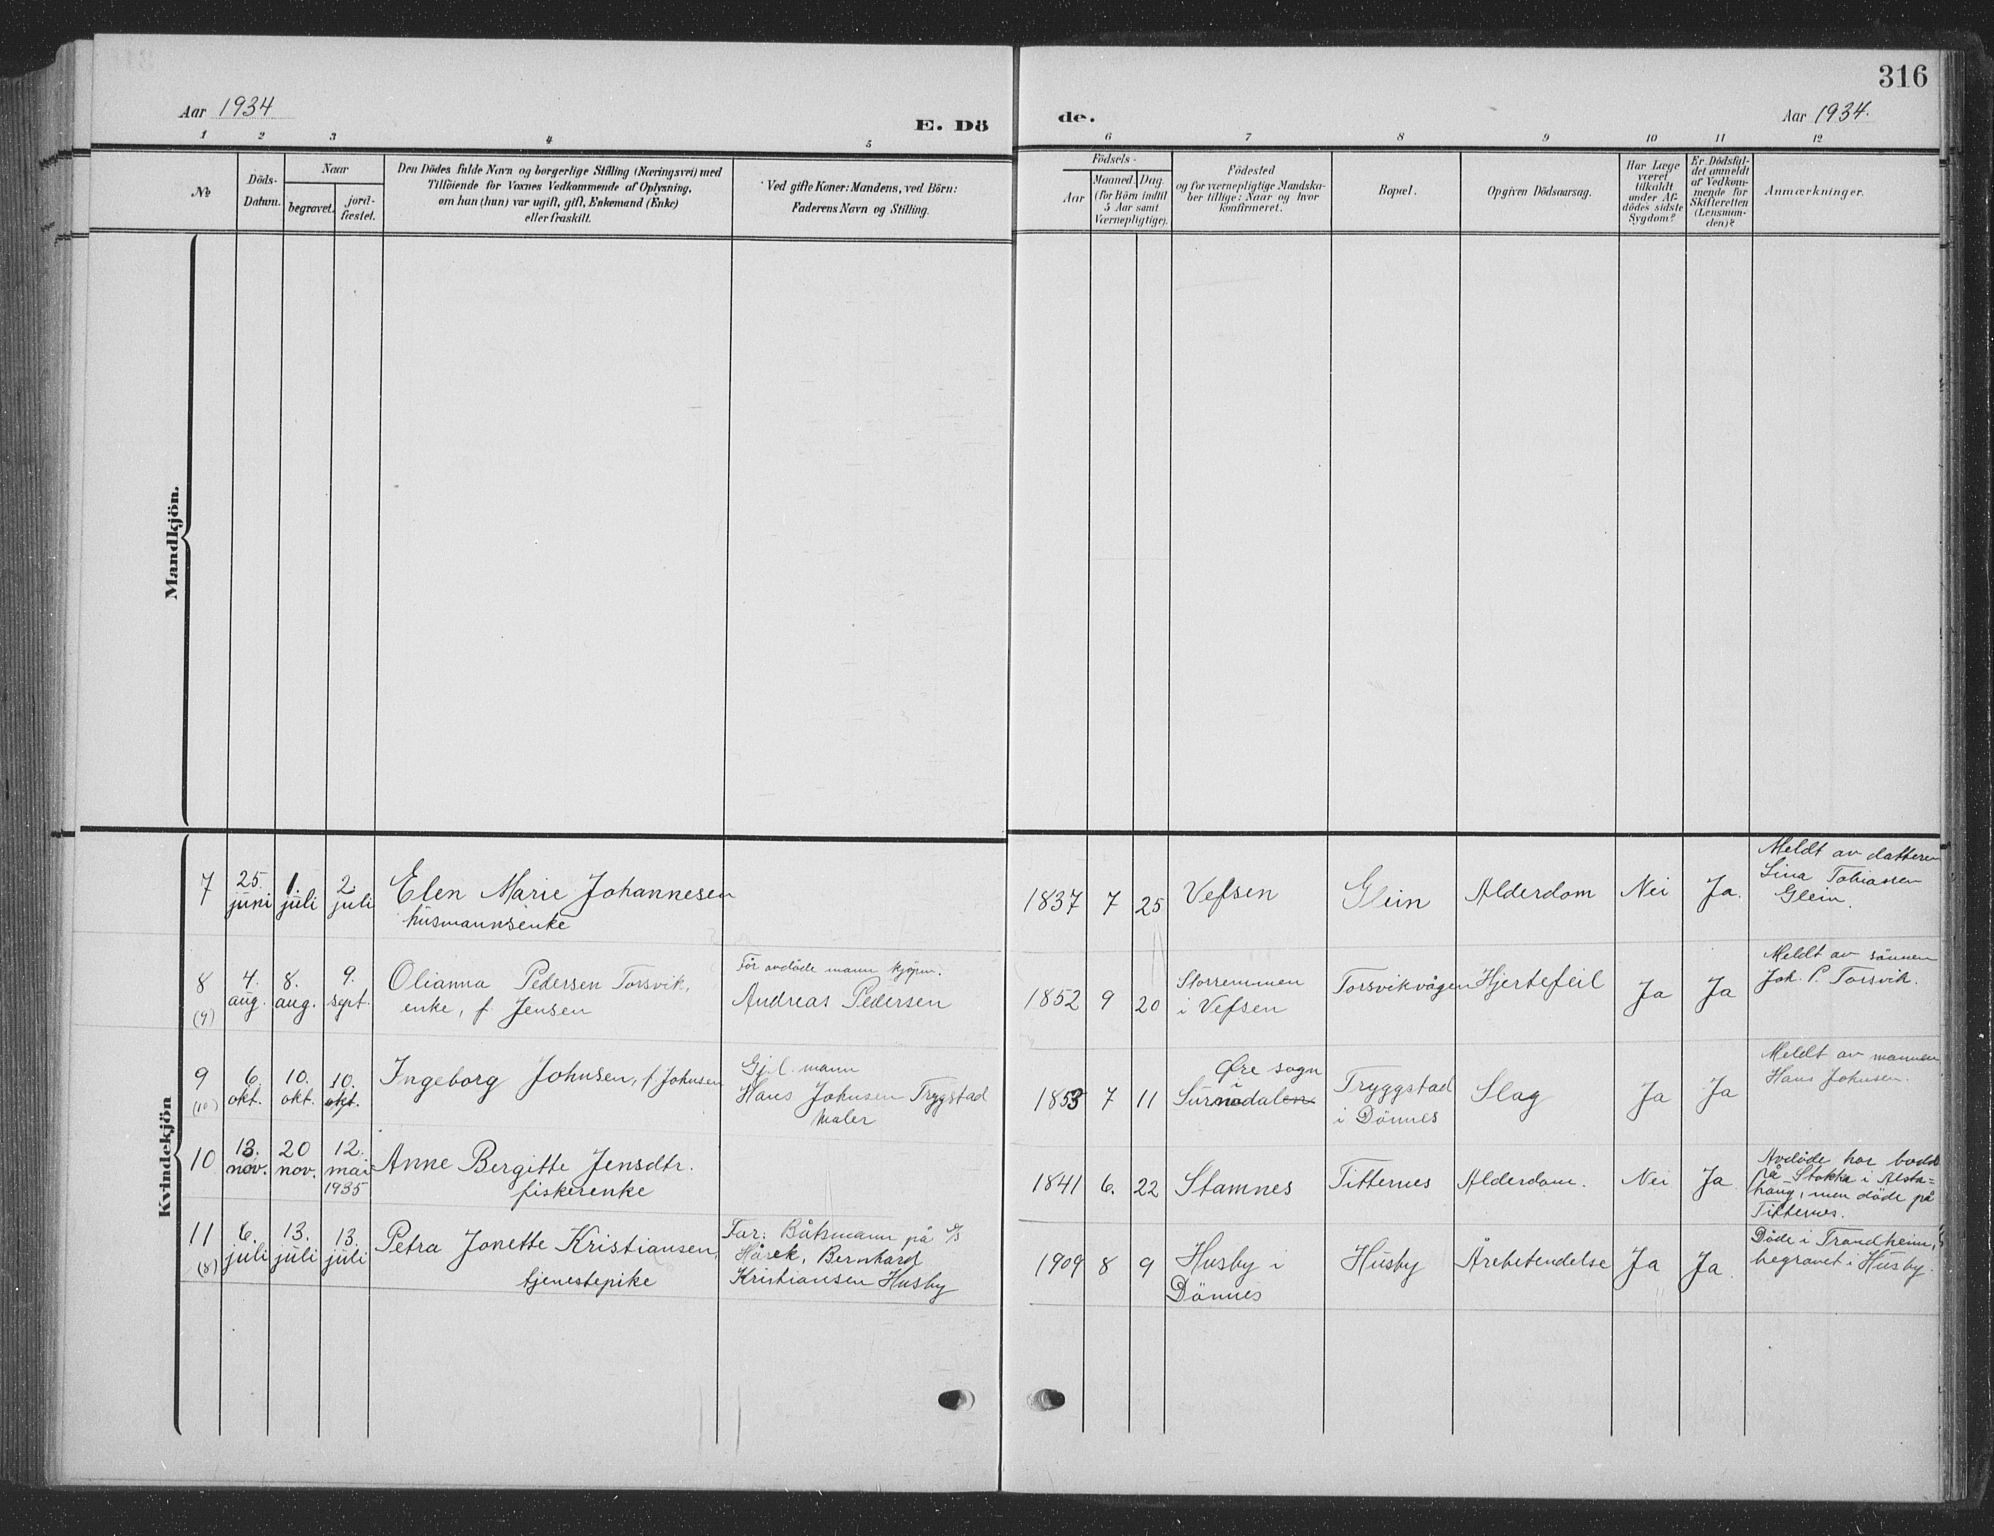 316
Aar 1934
E. Dö
de.
Aar 1934.
1 2 3 4 5 6 7 8 9 10 11 12
No
Döds-
Datum.
Naar
begravet.
jord-
fæstet.
Den Dödes fulde Navn og borgerlige Stilling (Næringsvei) med
Tilföiende for Voxnes Vedkommende af Oplysning,
om han (hun) var ugift, gift, Enkemand (Enke)
eller fraskilt.
Ved gifte Koner: Mandens, ved Börn:
Faderens Navn og Stilling.
Födsels-
Aar
Maaned. Dag.
(for Börn indtil
5 Aar samt
Værnepligtige).
Födested
og for værnepligtige Mandska-
ber tillige: Naar og hvor
konfirmeret.
Bopæl.
Opgiven Dödsaarsag.
Har Læge
været
tilkaldt
under Af-
dödes sidste
Sygdom?
Er Dödsfal-
det anmeldt
af Vedkom-
mende for
Skifteretten
(Lensman-
den)?
Anmærkninger.
Mandkjön.
Kvindekjön
7
25.
juni
1.
juli
2.
juli
Elen Marie Johannesen
husmannsenke
1837 7 25
Vefsen
Glein
Alderdom
Nei
Ja.
Meldt av datteren
Lina Tobiassen
Glein.
8
(9)
4.
aug.
8.
aug.
9.
sept.
Olianna Pedersen Torsvik,
enke, f. Jensen
For avdöde mann kjöpm.
Andreas Pedersen
1852 9 20
Storremmen
i Vefsen
Torsvikvågen
Hjertefeil
Ja
Ja
Meldt av sönnen
Joh. P. Torsvik.
9
(10)
6.
okt.
10.
okt.
10.
okt.
Ingeborg Johnsen, f. Johnsen
Gjl. mann
Hans Johnsen Tryggstad
maler
1853 7 11
Øre sogn
i
Surnadalen
Tryggstad
i Dönnes
Slag
Ja
Ja
Meldt av mannen
Hans Johnsen.
10
13.
nov.
20
nov.
12.
mai
1935
Anne Bergitte Jensdtr.
fiskerenke
1841 6. 22
Stamnes
Titternes
Alderdom.
Nei
Ja
Avdöde har bodd
på Stokka i Alsta-
haug, men döde på
Titternes.
11
(8)
6.
juli
13.
juli
13.
juli
Petra Jonette Kristiansen,
tjenestepike
Far: Båtsmann på s/s
Hårek, Bernhard
Kristiansen Husby
1909 8 9
Husby i
Dönnes
Husby
Årebetendelse
Ja
Ja.
Döde i Trondheim,
begravet i Husby.